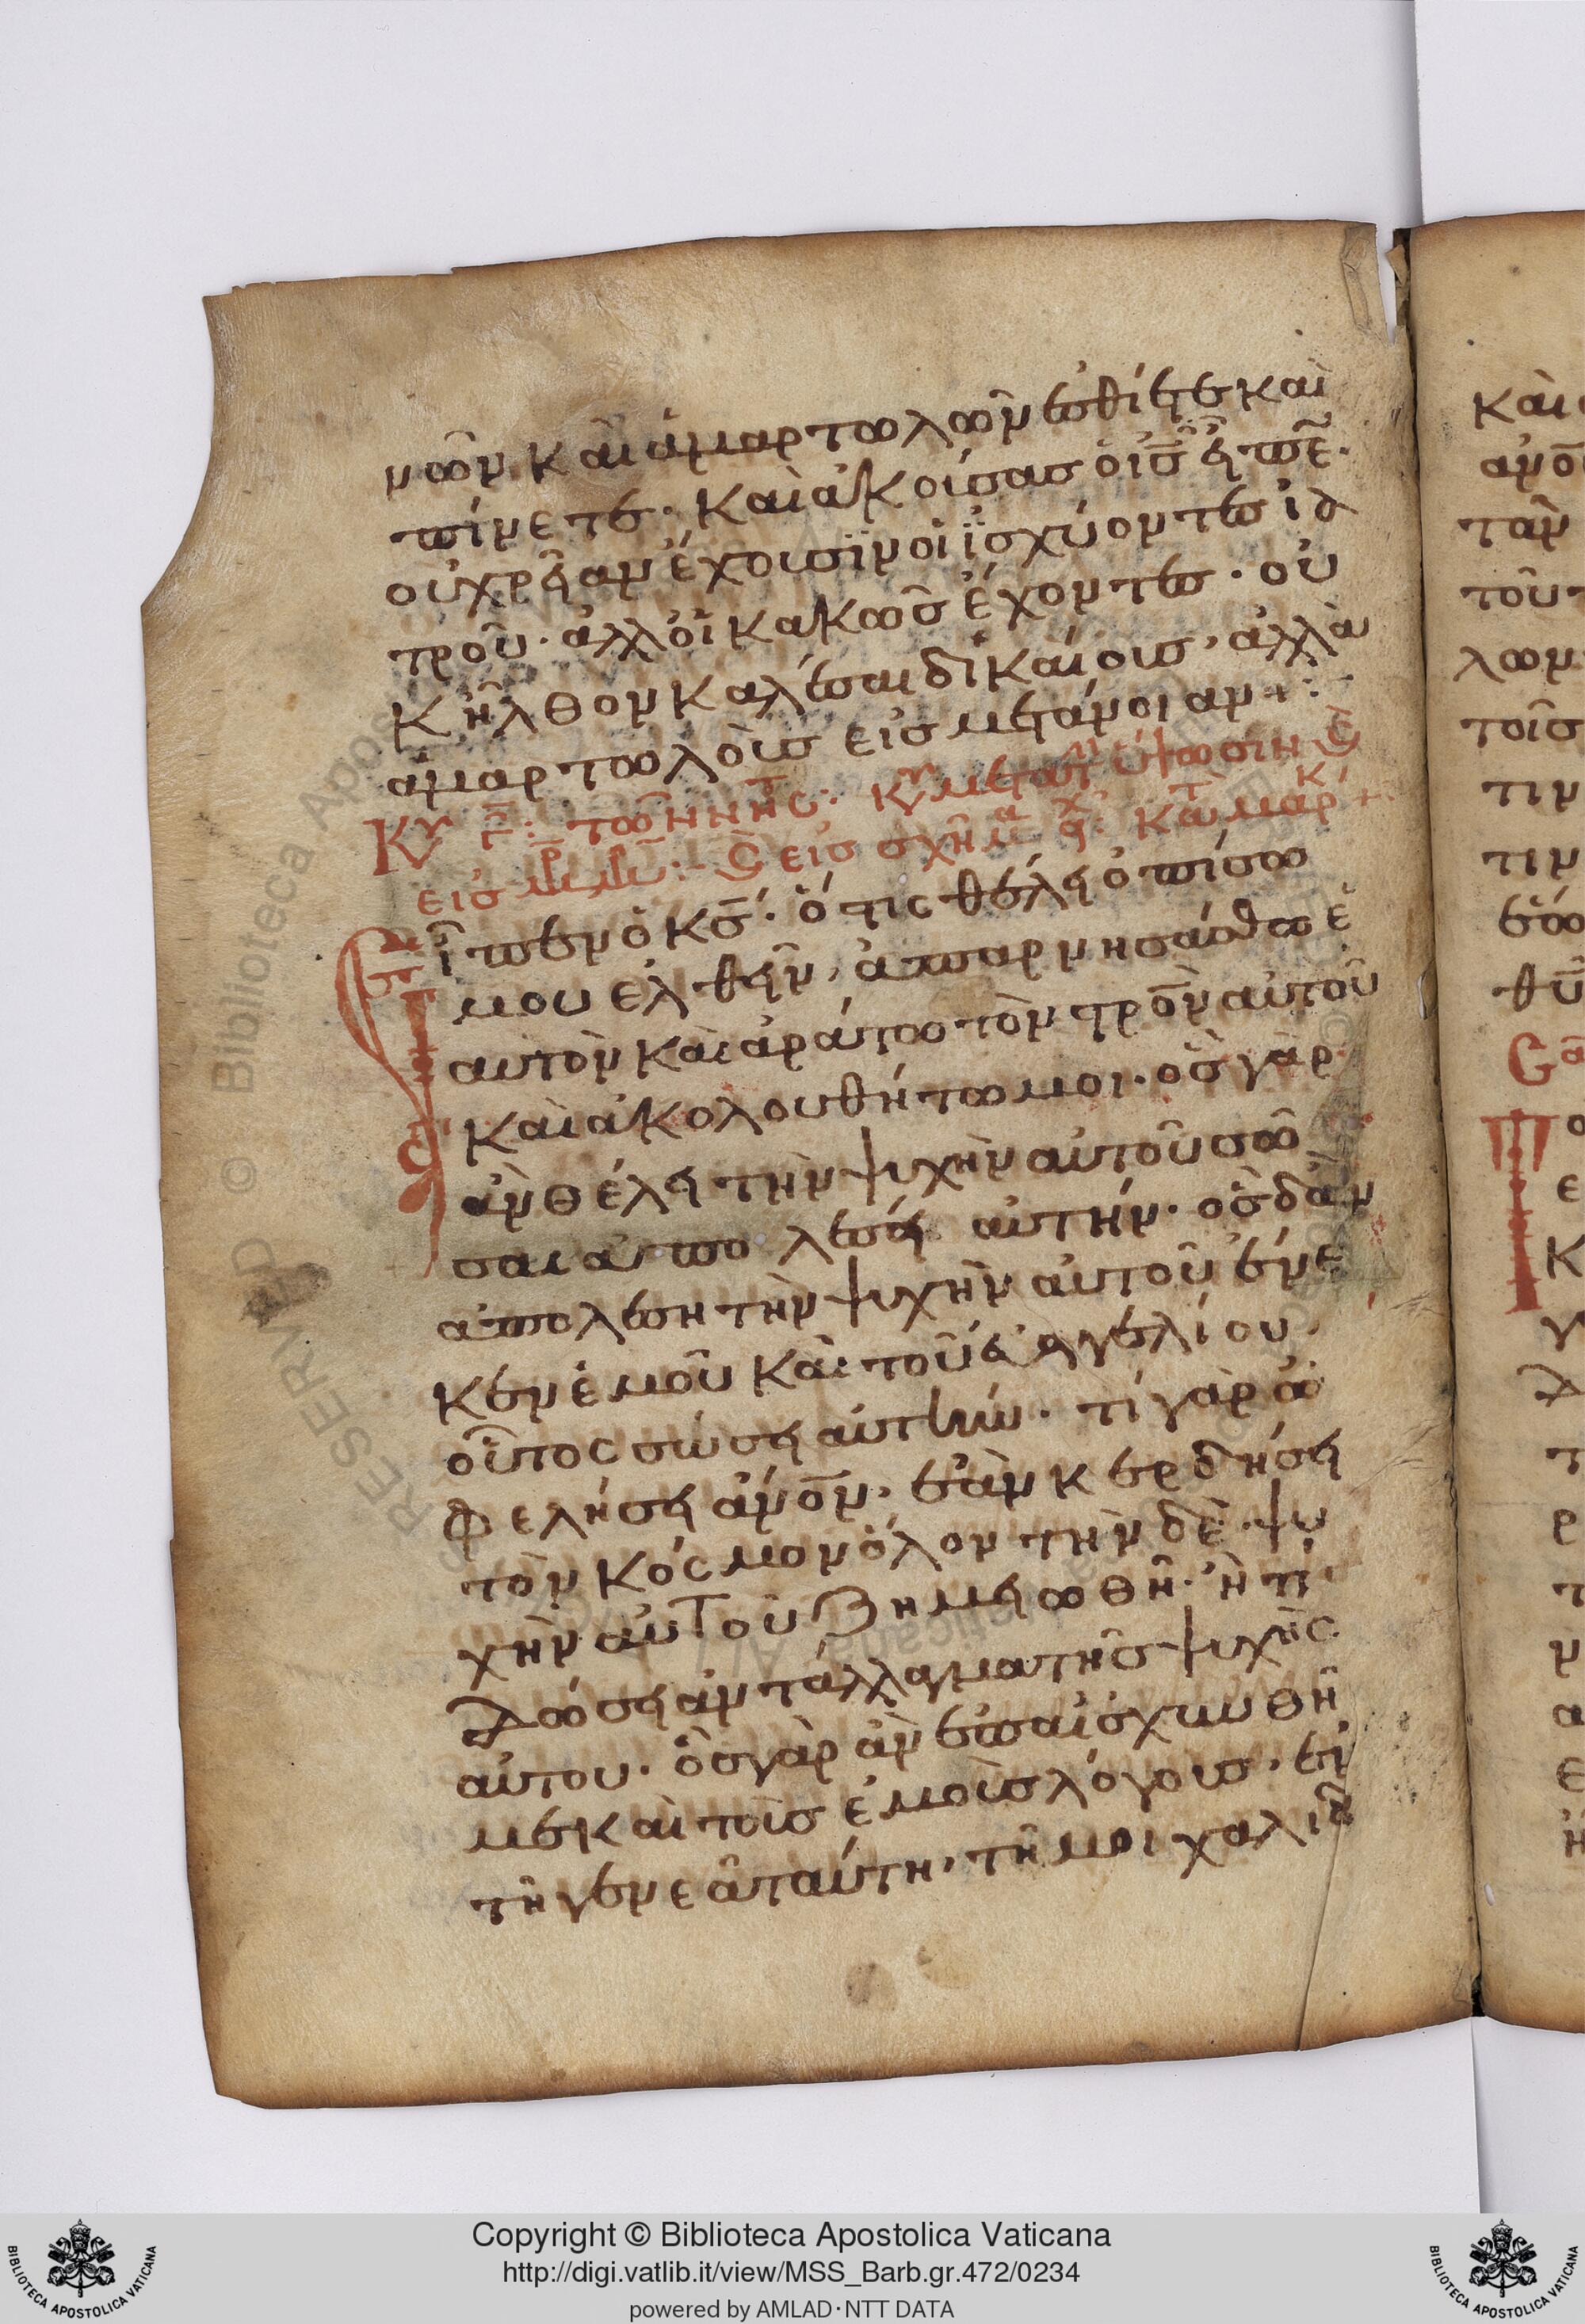 νῶν καὶ ἁμαρτωλῶν ἐσθίετε καὶ
πίνετε· καὶ ἀκούσας ὁ ις̅ εἶπε̅·
οὐ χρείαν ἔχουσϊν οἱ ἰσχύοντες ἰα
τροῦ· ἀλλ' οἱ κακῶς ἔχοντες· οὐ
κ ἦλθον καλέσαι δικαίους, ἀλλὰ
ἁμαρτωλοὺς εἰς μετάνοιαν +
Κυ γ̅: τῶν νηστ: κυ μετα τ ὑψωσιν
εἰς σχῆμα κατὰ μάρκ
εἶπεν ὁ κς̅· ὅστις θέλει ὀπίσω
μου ἐλθεῖν, ἀπαρνησάσθω ἑ
αυτὸν καὶ ἀράτω τὸν στρο̅ν αὐτοῦ
καὶ ἀκολουθήτω μοι· ὃς γὰρ
ἂν θέλει τὴν ψυχὴν αὐτοῦ σῶ
σαι ἀπολέσει αὐτήν· ὃς δ' ἂν
ἀπολέση τὴν ψυχὴν αὐτοῦ ἕνε
κεν ἐμοῦ καὶ τοῦ εὐαγγελίου,
οὗτος σώσει αὐτήν· τί γὰρ ὠ
φελήσει ἀνο̅ν, ἐὰν κερδήσει
τὸν κόσμον ὅλον τὴν δὲ ψυ
χὴν αὐτοῦ ζημειωθῆ· ἢ τί
δώσει ἀντάλλαγμα τῆς ψυχῆς
αὐτου· ὃς γὰρ ἂν ἐπαισχυνθῆ
με καὶ τοὺς ἐμοὺς λόγους, ἐν
τῆ γενεᾶ ταύτη, τῆ μοιχαλίδι
Copyright © Biblioteca Apostolica Vaticana
http://digi.vatlib.it/view/MSS_Barb.gr.472/0234
powered by AMLAD·NTT DATA
BIBLIOTECA APOSTOLICA VATICANA
BIBLIOTECA APOSTOLICA VATICANA